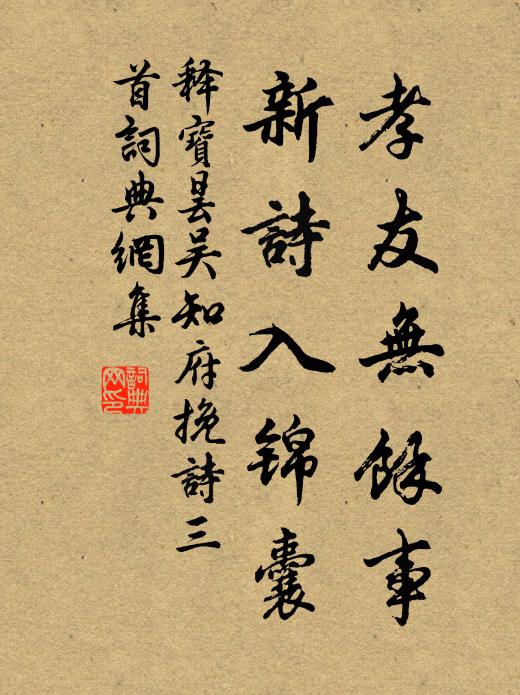 孝友無餘事
新詩入錦囊
释寶曇吴知府挽詩三
首詞典網集
詞典
网印